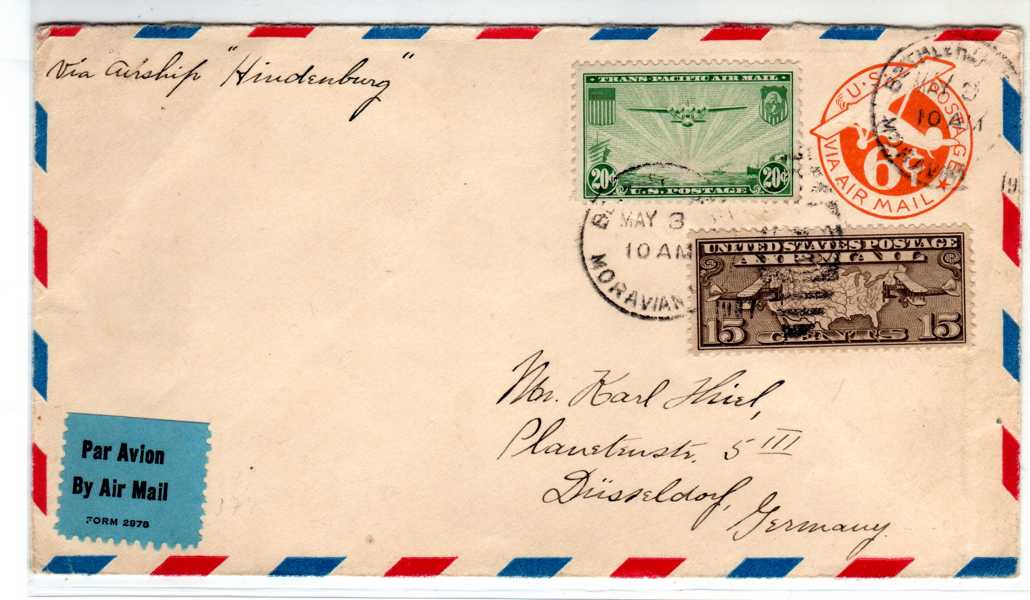 Via Airship "Hindenburg"
TRANS-PACIFIC AIR MAIL
20¢ 20¢
U.S. POSTAGE
U.S. POSTAGE
6¢
VIA AIR MAIL
10 AM
MORAVIAN
MAY 3
10 AM
MORAVIAN
UNITED STATES POSTAGE
AIR MAIL
15 CENTS 15
Mr. Karl Thiel,
Planetenstr. 5 III
Düsseldorf,
Germany
Par Avion
By Air Mail
FORM 2978